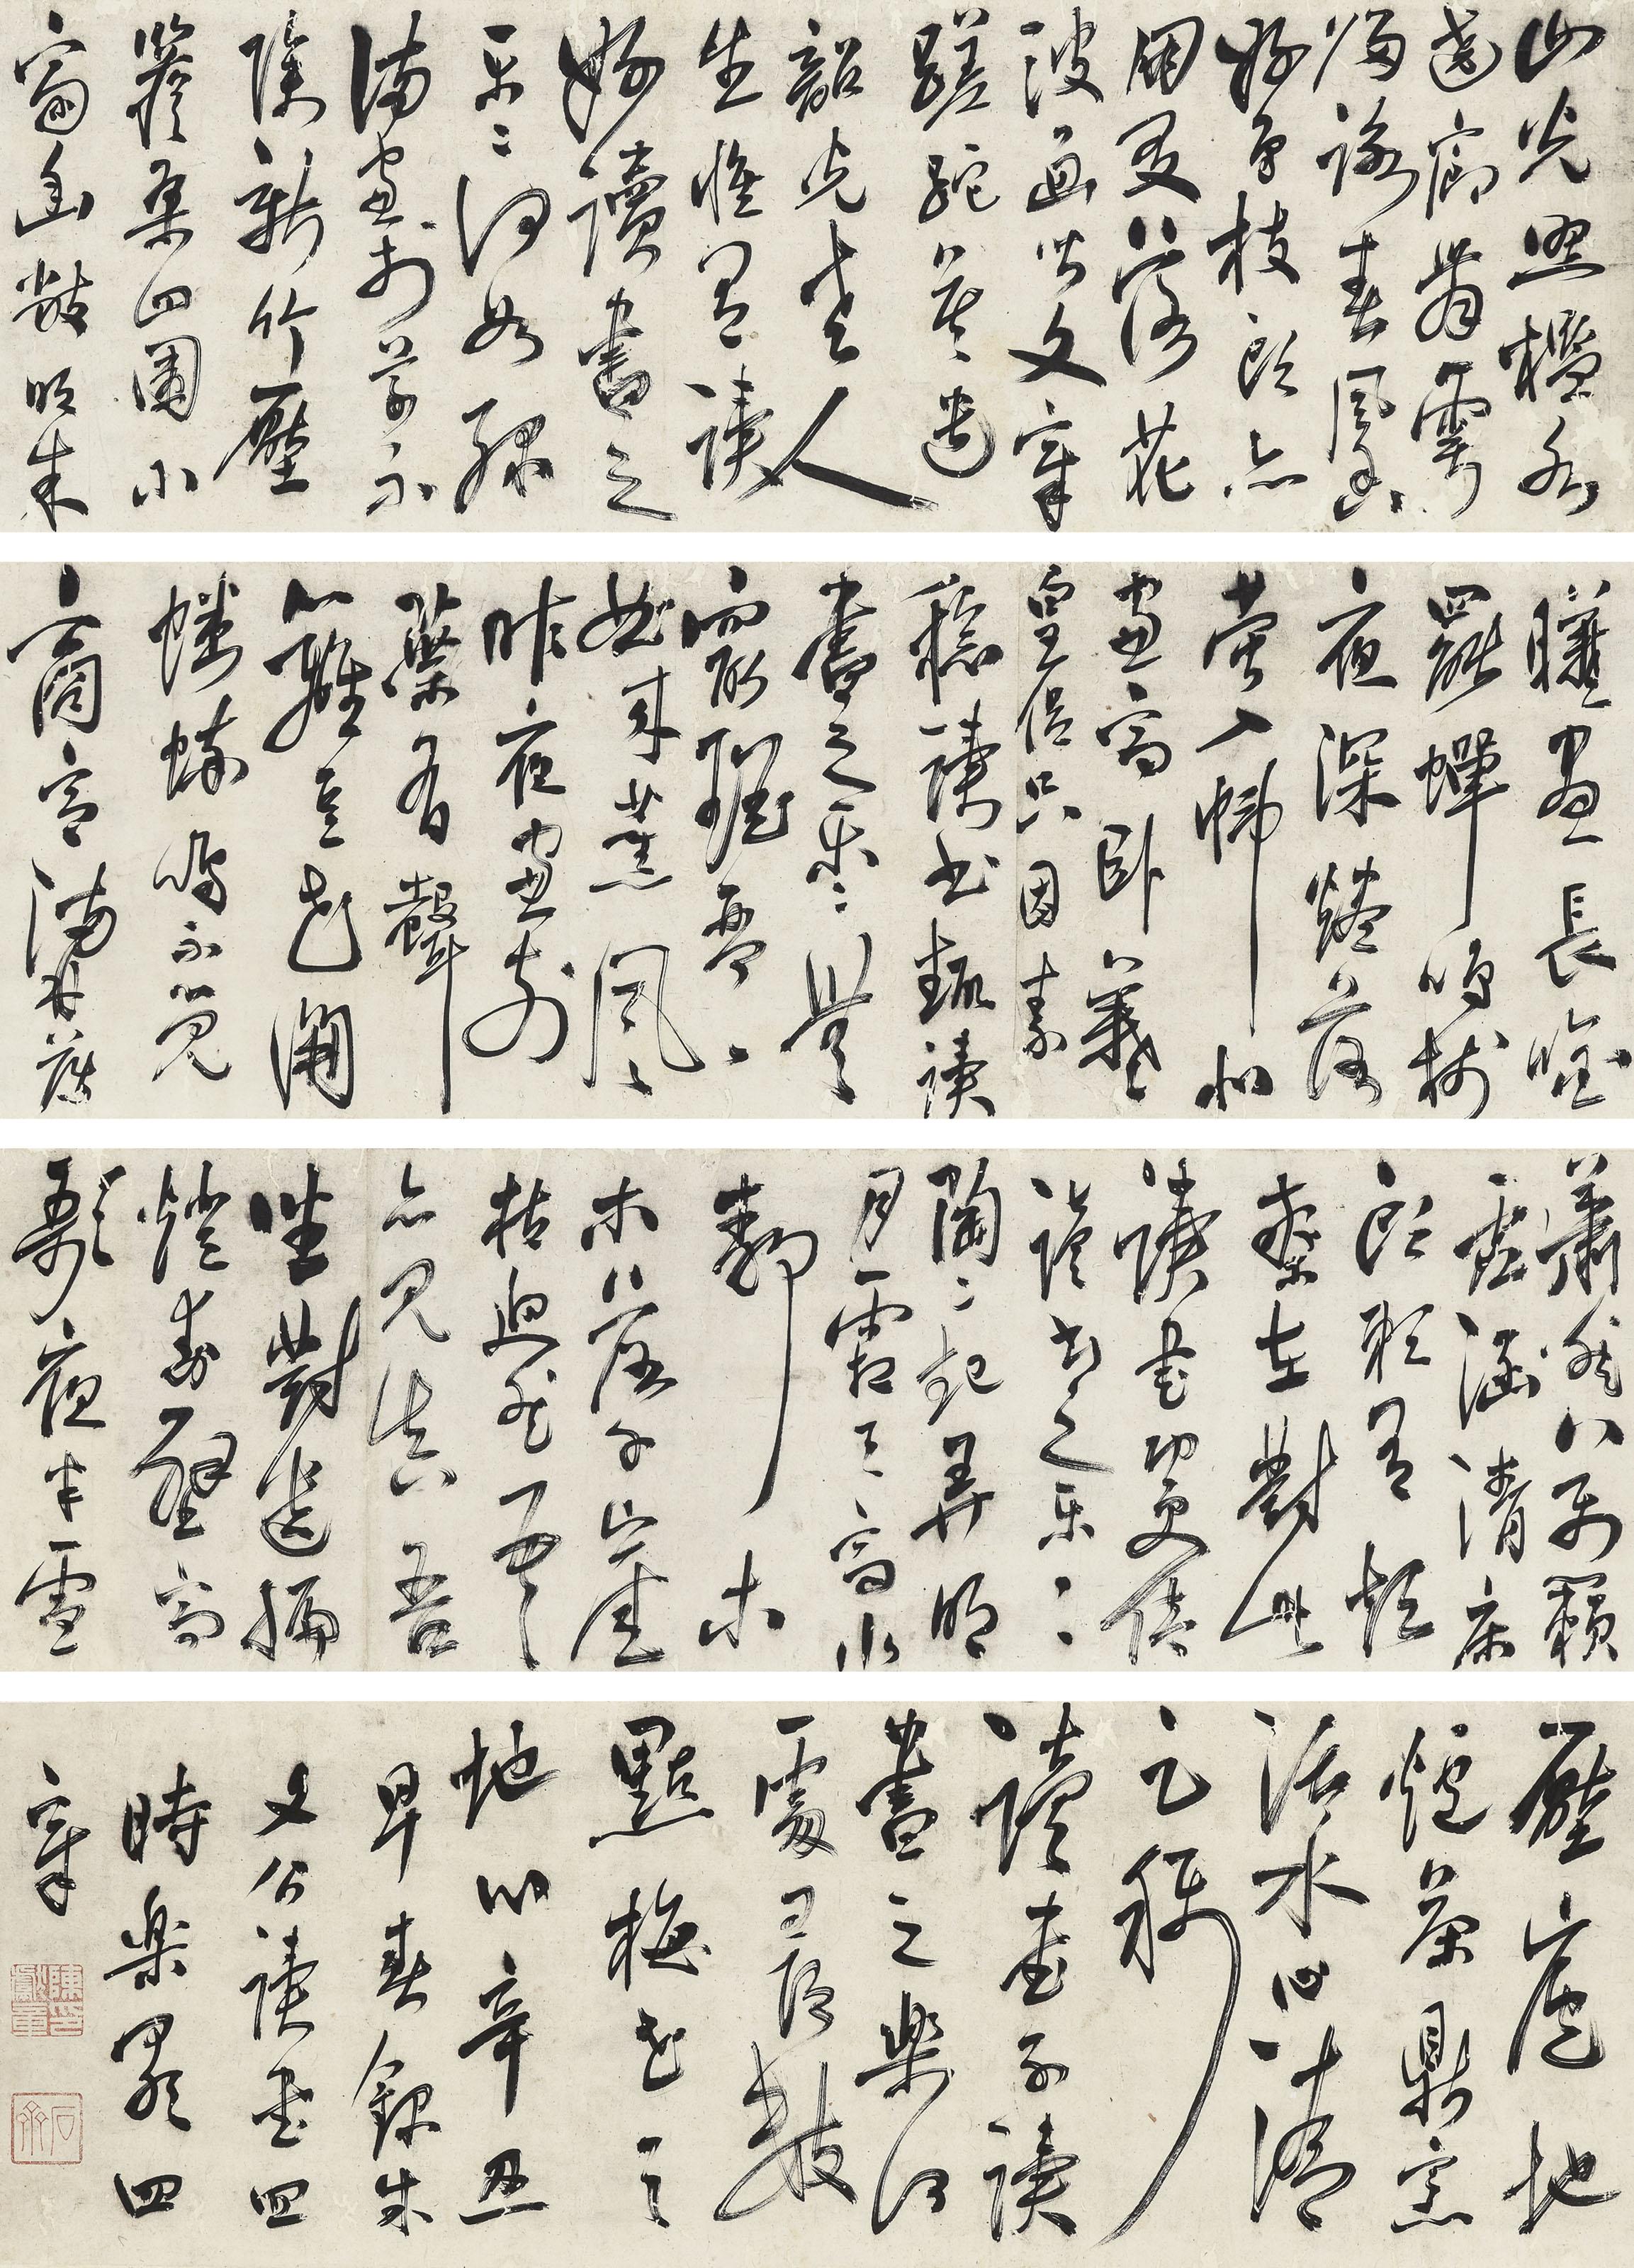 山光照檻水
遶廊舞雩
歸詠春風香
好鳥枝頭亦
朋友落花
波面皆文章
蹉跎莫遣
韶光老人
生惟有讀
好讀書之
樂〻何如綠
滿窗前草不
除新竹壓
簷桑四圍小
齋幽敞明朱
曦晝長吟
罷蟬鳴樹
夜深燼落
螢入幃北
窗高臥羲
皇侶只因素
稔讀書趣讀
書之樂〻無
窮瑤琴一
曲來薰風
昨夜窗前
葉有聲
籬豆花開
蟋蟀鳴不覺
商音滿林薄
蕭然萬籟
虛涵清床
頭賴有短
檠在對此
讀書功更倍
讀書之樂〻
陶〻起弄明
月霜天高
木
木落千崖
枯迥然吾
亦見真吾
坐對遺編
燈動壁高
歌夜半雪
壓廬地
爐茶鼎烹
活水心清
足稱
讀書子讀
書之樂何
處尋數
點梅花天
地心辛丑
早春錄朱
文公讀書四
時樂畧四
章
陳印獻章
石齋